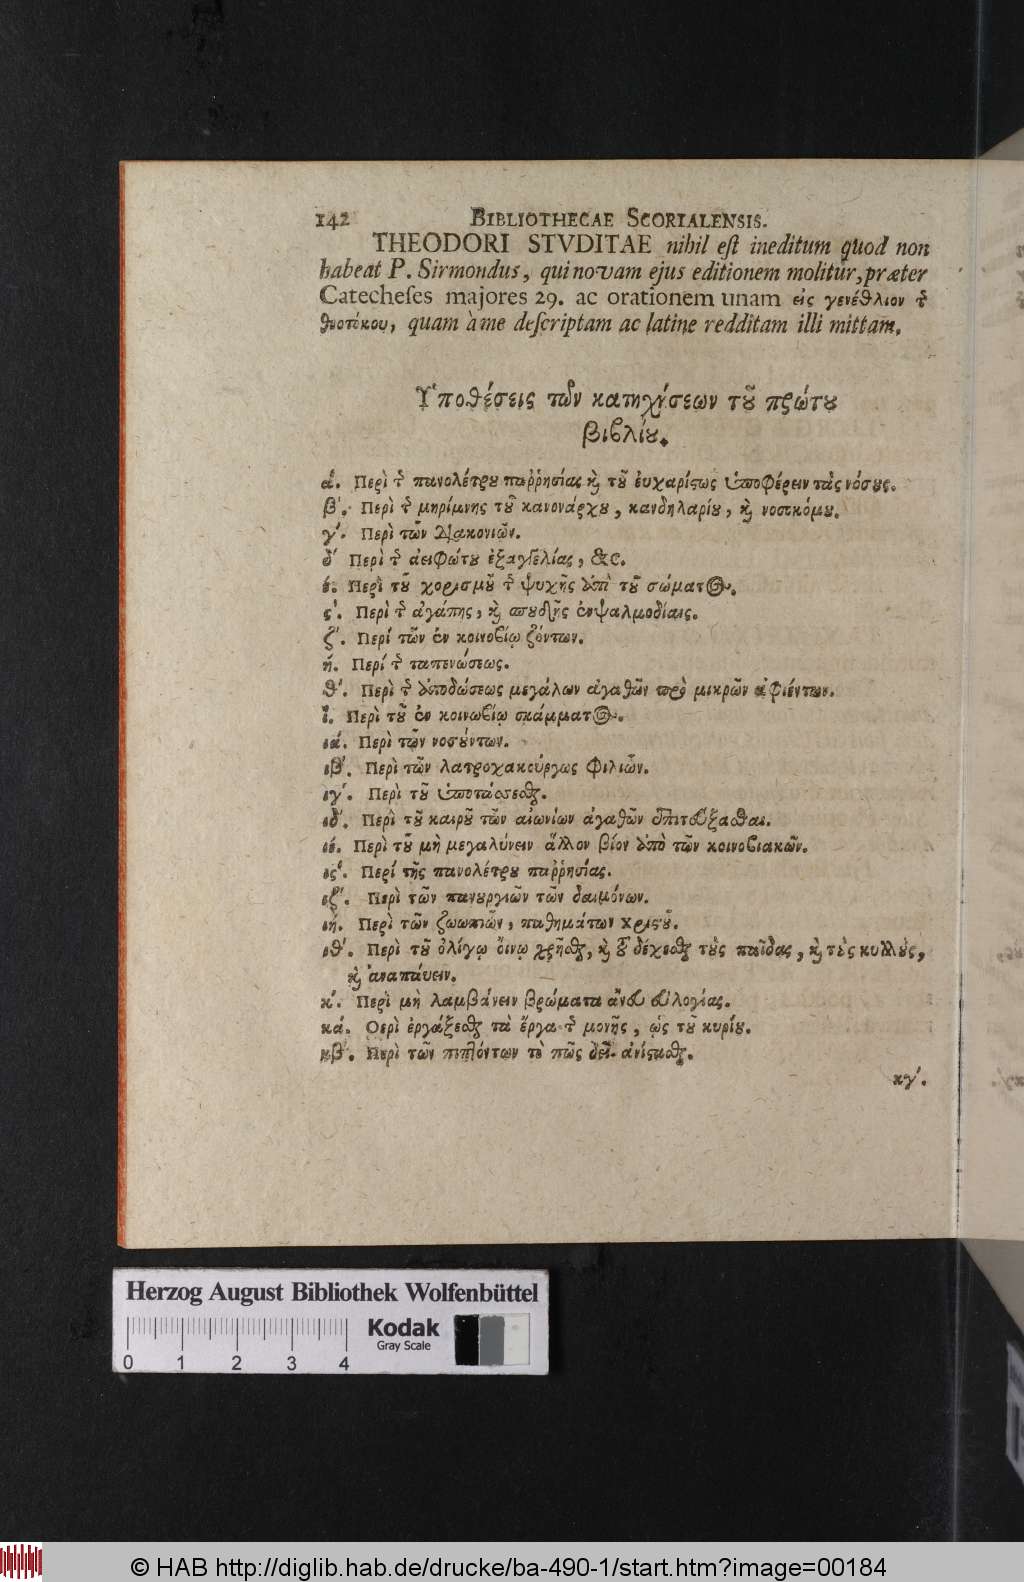 142 BIBLIOTHECAE SCORIALENSIS.
THEODORI STVDITAE nihil est ineditum quod non
habeat P. Sirmondus, qui novam ejus editionem molitur, præter
Catecheses majores 29. ac orationem unam εἰς γενέθλιον τῆς
θεοτόκου, quam à me descriptam ac latine redditam illi mittam.
Ὑποθέσεις τῶν κατηχήσεων τοῦ πρώτου
βιβλίου.
ά. Περὶ τῆς πανολέτρου παῤῥησίας καὶ τοῦ εὐχαρίστως ὑποφέρειν τὰς νόσους.
β΄. Περὶ τῆς μηρίμνης τοῦ κανονάρχου, κανδηλαρίου, καὶ νοσοκόμου.
γ΄. Περὶ τῶν διακονιῶν.
δ΄ Περὶ τῆς ἀειφώτου ἐξαγγελίας, &c.
έ. Περὶ τοῦ χορισμοῦ τῆς ψυχῆς ἀπὸ τοῦ σώματος.
ς΄. Περὶ τῆς ἀγάπης, καὶ σπουδῆς ἐν ψαλμοδίαις.
ζ΄. Περί τῶν ἐν κοινοβίῳ ζόντων.
ή. Περί τῆς ταπενώσεως.
θ΄. Περὶ τῆς ἀποδώσεως μεγάλων ἀγαθῶν πρὸ μικρῶν ἀφιέντων.
ΐ. Περὶ τοῦ ἐν κοινωβίῳ σκάμματος.
ιά. Περὶ τῶν νοσούντων.
ιβ΄. Περὶ τῶν λατροχακούργως φιλιῶν.
ιγ΄. Περὶ τοῦ ὑποτάσσεσθαι.
ιδ΄. Περὶ τοῦ καιροῦ τῶν αἰωνίων ἀγαθῶν ἐπιτεύξασθαι.
ιέ. Περὶ τοῦ μὴ μεγαλύνειν ἄλλον βίον ἀπὸ τῶν κοινοβιακῶν.
ις΄. Περί τῆς πανολέτρου παῤῥησίας.
ιζ΄. Περὶ τῶν πανουργιῶν τῶν δαιμόνων.
ιή. Περὶ τῶν ζωωπιῶν, παθημάτων χριστοῦ.
ιθ΄. Περὶ τοῦ ὀλίγῳ οἴνῳ χρῆσθαι, καὶ οὗ δέχεσθαι τοὺς παῖδας, καὶ τοὺς κυλλοὺς,
καὶ ἀναπάυειν.
κ΄. Περὶ μὴ λαμβάνειν βρώματα ἄνευ εὐλογίας.
κά. Θερὶ ἐργάζεσθαι τὰ ἔργα τῆς μονῆς, ὡς τοῦ κυρίου.
κβ΄. Περὶ τῶν πιπτόντων τὸ πῶς δεῖ ἀνίστασθαι.
κγ΄.
Herzog August Bibliothek Wolfenbüttel
Kodak
Gray Scale
0 1 2 3 4
© HAB http://diglib.hab.de/drucke/ba-490-1/start.htm?image=00184